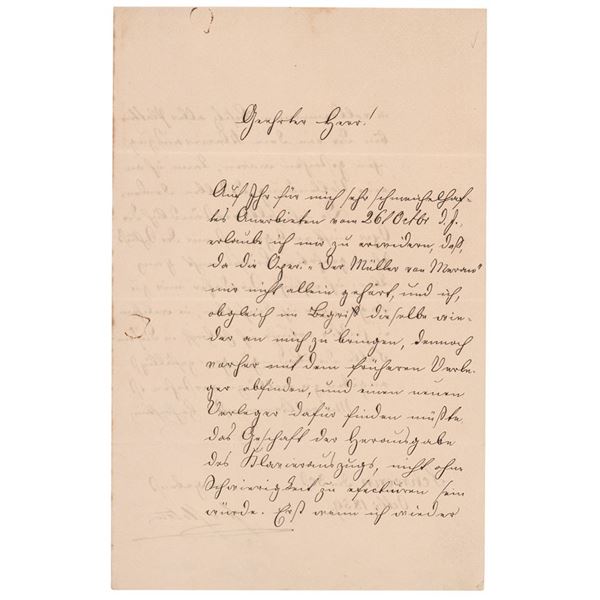 Geehrter Herr!
Auf Ihr für mich sehr schmeichelhaf-
tes Anerbieten vom 26/Octbr d. J.,
erlaube ich mir zu erwidern, daß,
da die Oper: „Der Müller von Meran"
mir nicht allein gehört, und ich,
obgleich im Begriff dieselbe wie-
der an mich zu bringen, dennoch
vorher mit dem früheren Verle-
ger abfinden, und einen neuen
Verleger dafür finden müßte
das Geschäft der Herausgabe
des Klavierauszugs, nicht ohne
Schwierigkeit zu efectuiren sein
würde. Erst wenn ich wieder